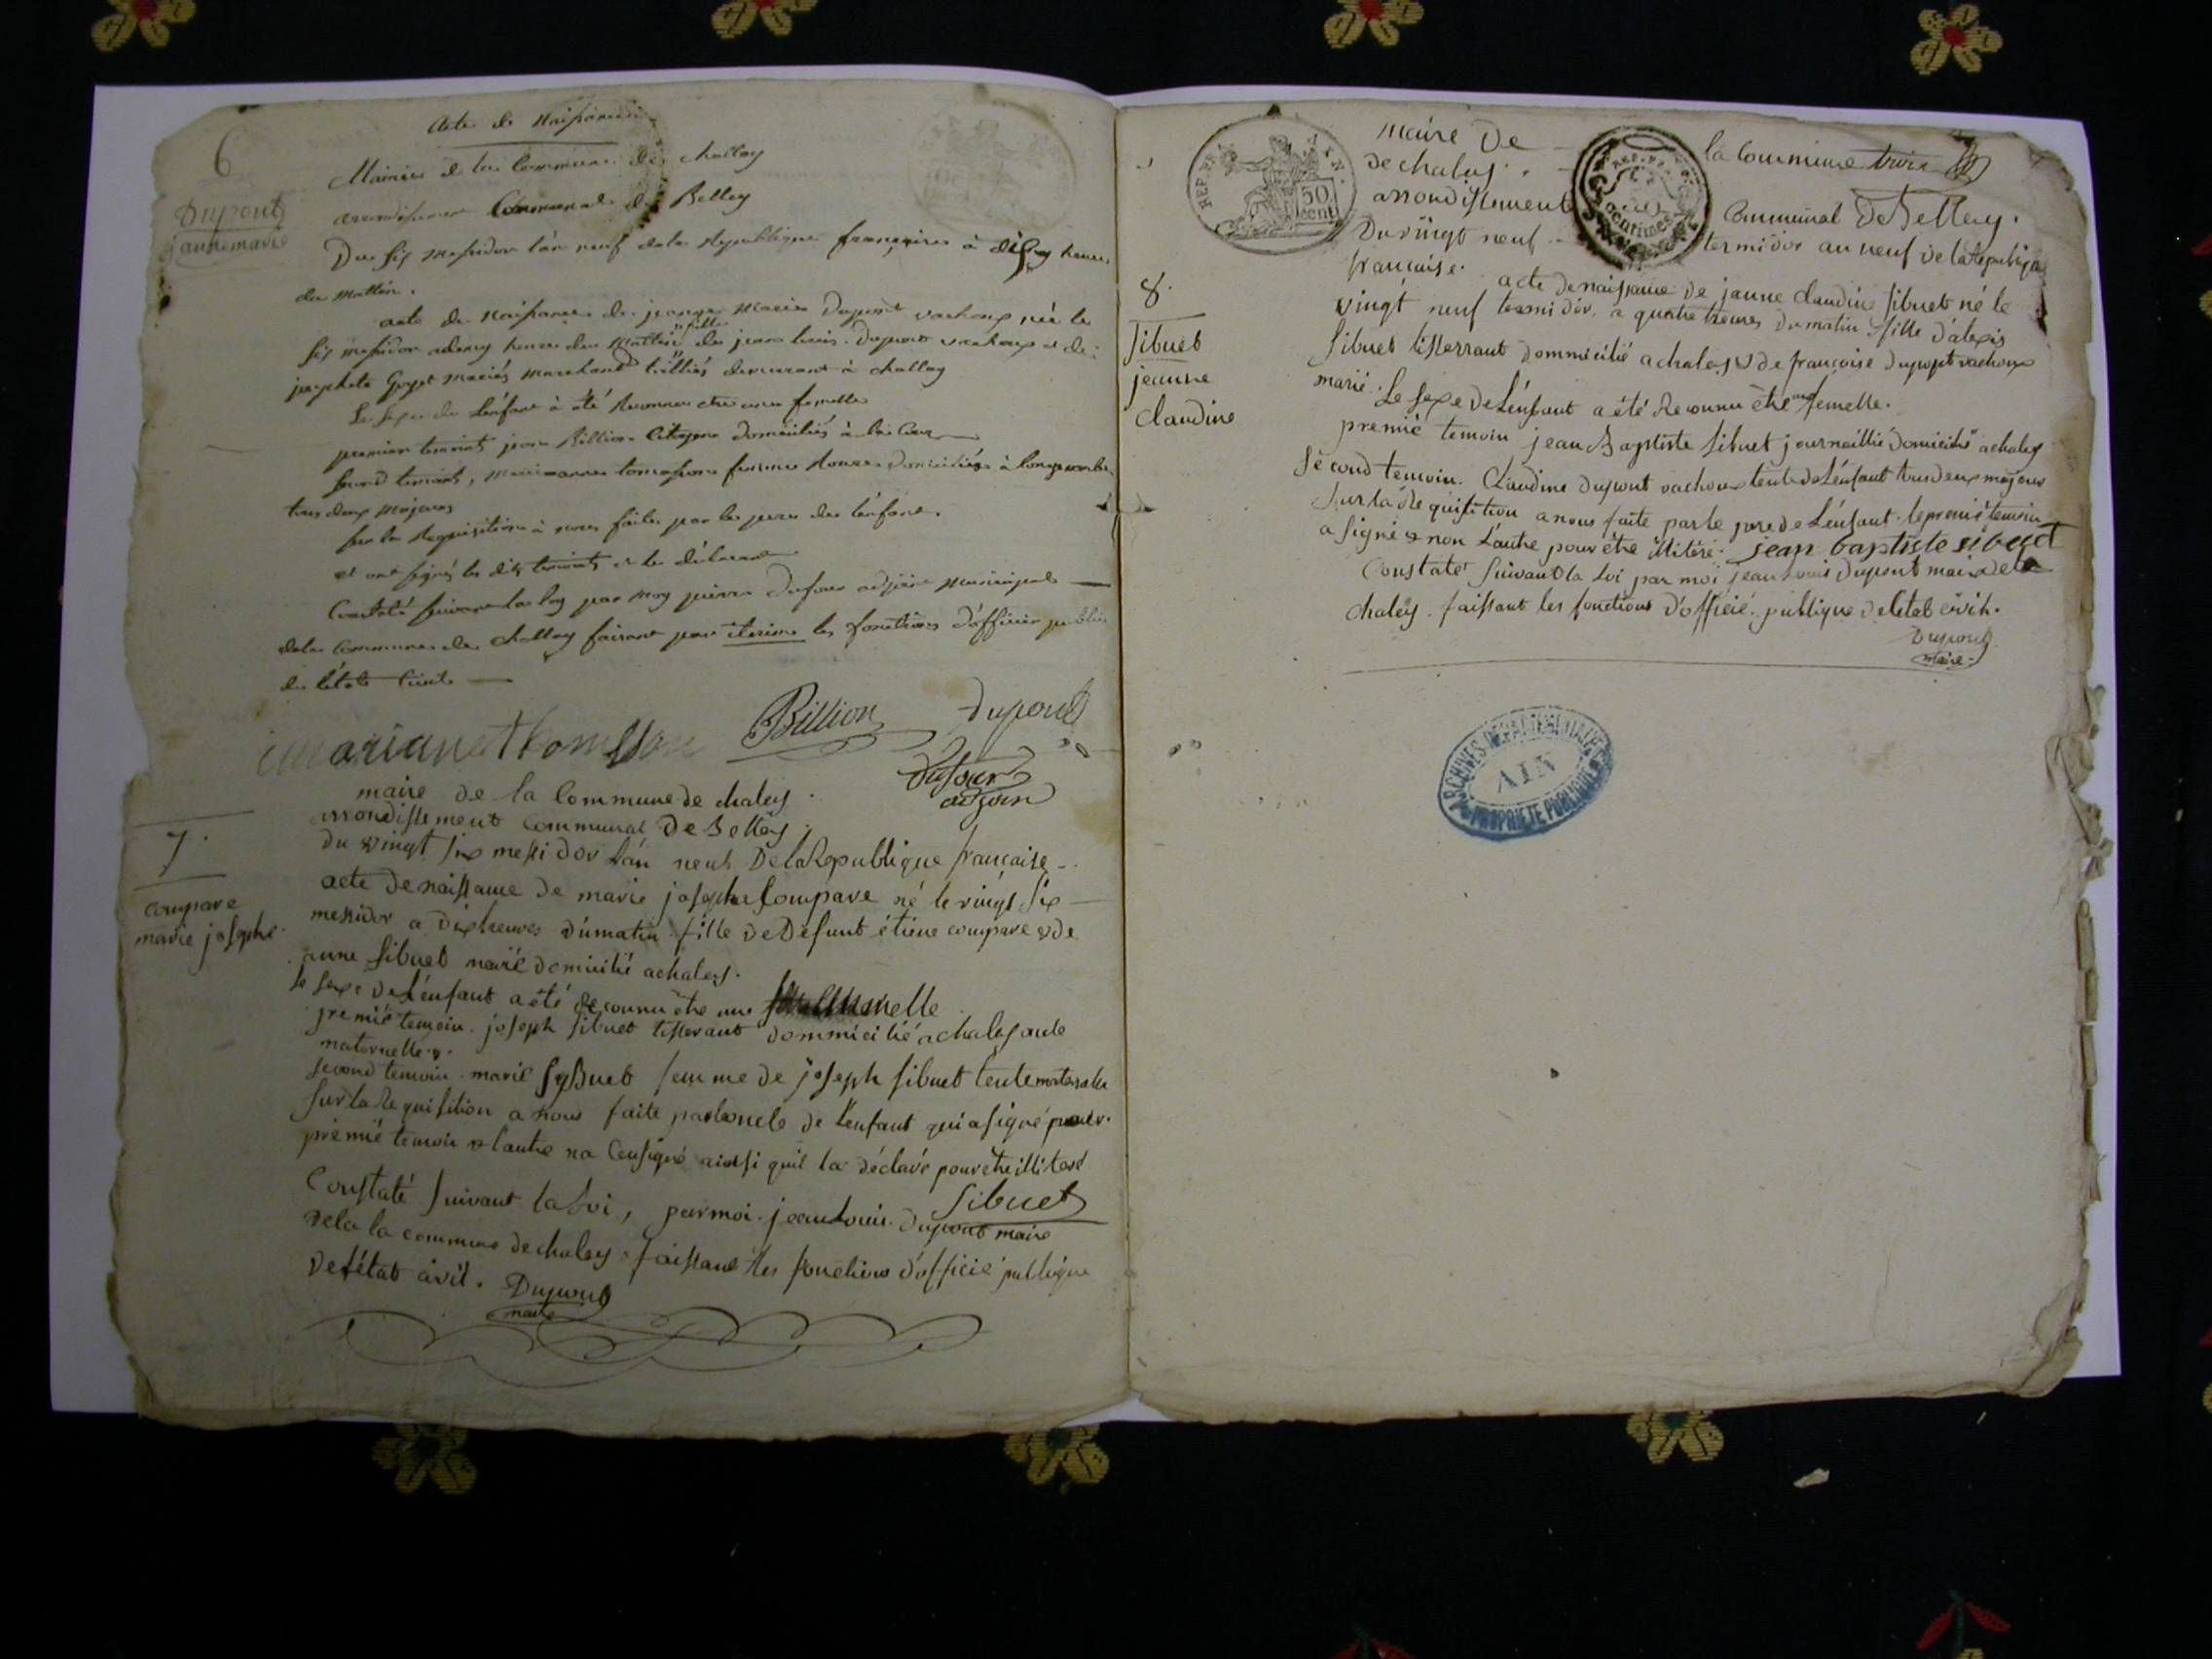 6
Acte de Naissance
Mairie de la Commune de challey
arrondissement Communal de Belley
Dupont
jannemarie
Du six messidor l'an neuf de la Republique française à dix heures
du mattin.
acte de naissance de jeanne Marie Dupont vachoux née le
six messidor à heures du mattin fille de jean louis Dupont vachoux et de
josephete Goyet mariés marchand demeurant à challey
Le sexe de l'enfant à été reconnu etre une femelle
premier temoint jean Billion Citoyen domicilliés à
second temoint, marianne tomasson femme domiciliée à
tous deux majeurs
sur la Requisition à nous faite par le pere de l'enfant.
et ont signés les dits temoints et le déclarant
Constaté suivant la loy par moy pierre Dufour adjoint municipal
de la Commune de challey faisant par iterime les fonctions d'officier public
de l'état Civil
mariane thomasson Billion Dupont
Dufour
adjoin
7.
maire de la Commune de chaley.
arrondissement Communal de Belley.
du vingt six messidor l'an neuf De la Republique française
compare
marie josephe
acte de naissance de marie josephe Compare né le vingt six
messidor a dix heures du matin fille de Defunt étiene compare & de
anne Sibuet marié domicilié a chaley.
le sexe de L'enfant a été reconnu être une femelle
premié temoin joseph sibuet tisserant dommicilié a chaley oncle
maternelle.
second temoin marie Sybuet femme de joseph sibuet tente maternelle
sur la Requisition a nous faite par loncle de L'enfant qui a signé pour
premié temoin & lautre na signé ainsi quil la déclaré pour être illiteré
Sibuet
Constaté suivant la Loi, par moi jean Louis Dupont maire
de la la commune de chaley faissant les fonctions d'officié publique
de l'état civil. Dupont
maire
REP. FRA. 50 cent.
maire De la Commune trois
de chaley.
arrondissement Communal de Belley.
Du vingt neuf termidor an neuf de la Republique
française.
8.
Sibuet
jeanne
claudine
acte de naissance de jaune claudine sibuet né le
vingt neuf termidor a quatre heures du matin fille d'alexis
Sibuet tisserant dommicilié a chaley & de françoise dupont vachoux
marié. Le sexe de L'enfant a été reconnu être une femelle.
premié temoin jean Baptiste sibuet journaillié domicilié a chaley
second temoin. Claudine dupont vachoux tente de L'enfant tous deux majeur
sur la Requisition a nous faite par le pere de L'enfant. le premié temoin
a signé & non L'autre pour être illiteré. jean baptiste sibuet
Constaté suivant la Loi par moi jean Louis Dupont maire de
chaley. faissant les fonctions d'officié publique de letat civil.
Dupont
maire
ARCHIVES DÉPARTEMENTALES
AIN
PROPRIÉTÉ PUBLIQUE